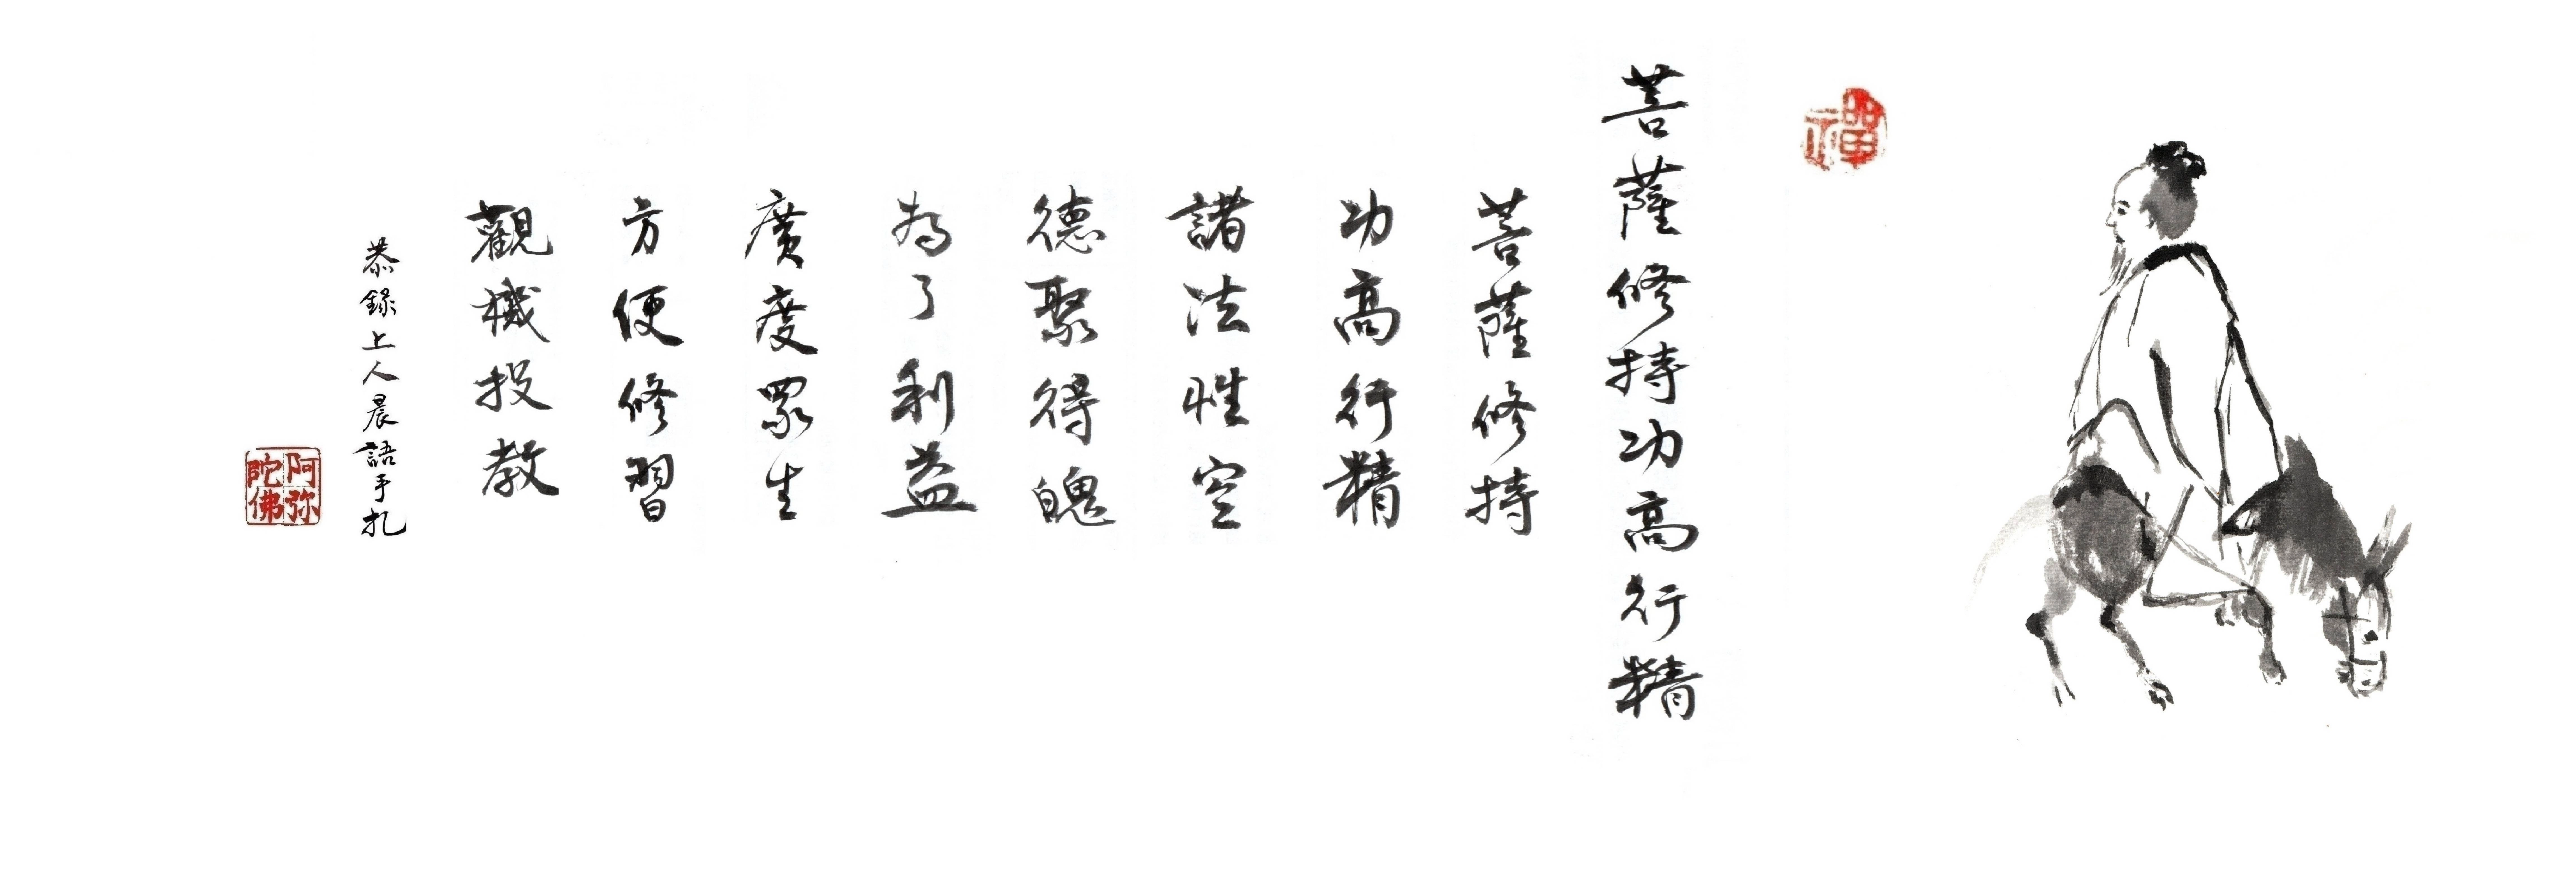 禪
菩薩修持功高行精
菩薩修持
功高行精
諸法性空
德聚得魄
為了利益
廣度眾生
方便修習
觀機投教
恭錄上人晨語手札
阿弥陀佛